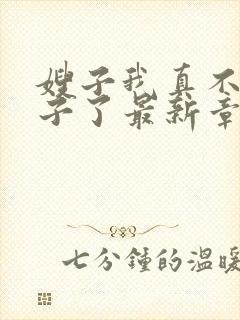 嫂子我真不
子了最新章
七分钟的温暖